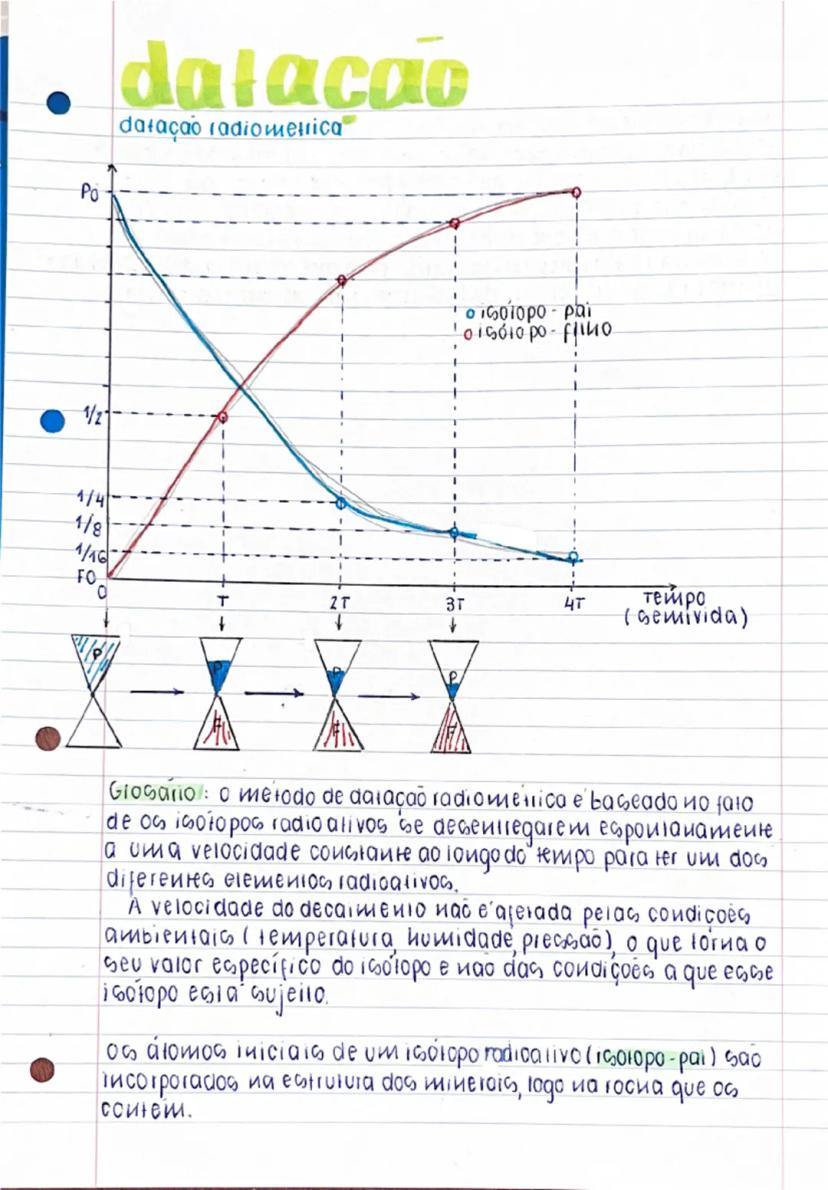 datação
datação radiometrica
P0
isótopo - pai
isótopo - filho
1/2
1/4
1/8
1/16
F0
0
T
2T
3T
4T
tempo
(semivida)
P
P
P
P
F
F
F
Glosário: o método de datação radiometrica é baseado no fato
de os isótopos radioativos se desentegarem espontanamente
a uma velocidade constante ao longo do tempo para ter um dos
diferentes elementos radioativos.
A velocidade do decaimento não é afetada pelas condições
ambientais (temperatura, humidade, pressão), o que torna o
seu valor específico do isótopo e não das condições a que esse
isótopo está sujeito.
os átomos iniciais de um isótopo radioativo (isótopo-pai) são
incorporados na estrutura dos minerais, logo na rocha que os
contém.